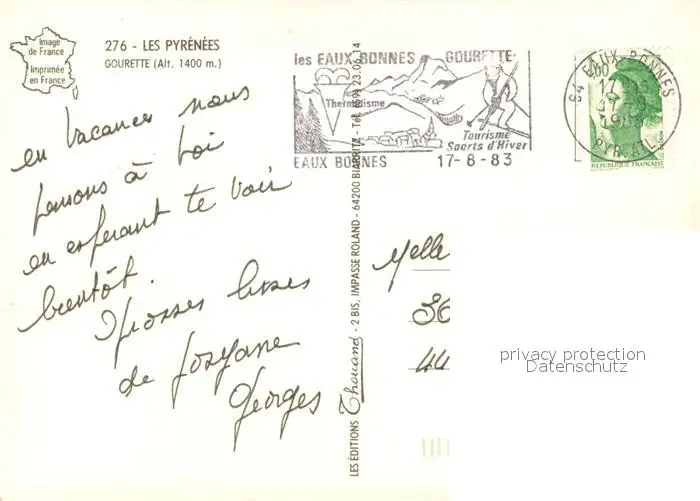 Image
de France
Imprimée
en France
276 - LES PYRÉNÉES
GOURETTE (Alt. 1400 m.)
les EAUX BONNES GOURETTE
Thermalisme
Tourisme
Sports d'Hiver
EAUX BONNES 17-8-83
64 EAUX BONNES
17-8
1983
PYR. ATL.
RÉPUBLIQUE FRANÇAISE
en vacances nous
pensons à toi
en espérant te voir
bientôt.
Grosses bises
de Josyane
Georges
LES ÉDITIONS Thouand - 2 BIS, IMPASSE ROLAND - 64200 BIARRITZ - Tél. (59) 23.06.14
Melle
36
44
privacy protection
Datenschutz